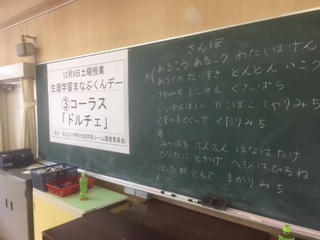 12月9日土曜授業
生涯学習まなぶくんデー
③コーラス
「ドルチェ」
さんぽ
あるこう あるこう わたしはげん
あるくの だいすき どんどん いこう
さかみち トンネル くさっぱら
いっぽんばしに でこぼこ じゃりみち
くものすくぐって くだりみち
みつばち ぶんぶん はなばたけ
ひなたに とかげ へびはひるね
ばったが とんで まがりみち